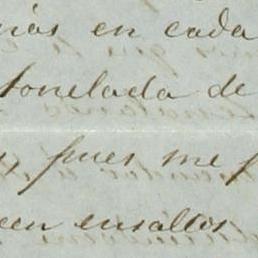 más en cada
tonelada de
pues me
en ensallos